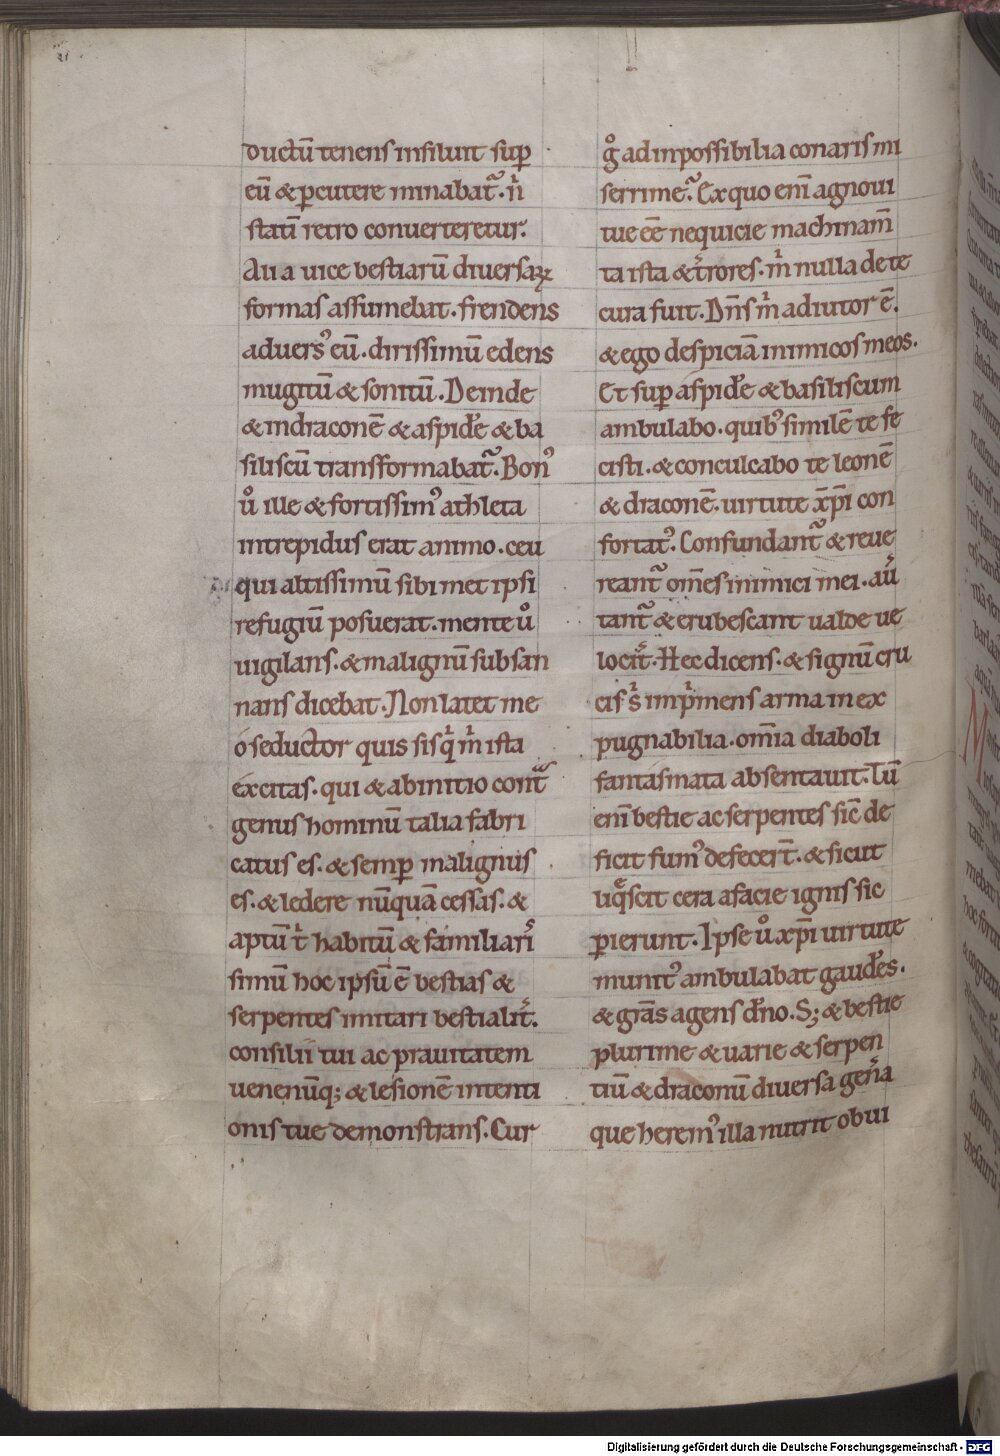 ductū tenens insiluit suꝑ
eū & ꝑcutere minabat᷑. n̄
statū retro conuerteretur.
Alia uice bestiarū diuersaꝝ
formas assumebat. frendens
aduersꝰ eū. dirissimū edens
mugitū & sonitū. Deinde
& indraconē & aspidē & ba
siliscū transformabat᷑. Bonꝰ
uͦ ille & fortissimꝰ athleta
intrepidus erat animo. ceu
qui altissimū sibi met ipsi
refugiū posuerat. mente uͦ
uigilans. & malignū subsan
nans dicebat. Non latet me
o seductor quis sis qͥ mͥ ista
excitas. qui & abinitio contᷓ
genus hominū talia fabri
catus es. & semꝑ malignus
es. & ledere nūquā cessas. &
aptū tͥ habitū & familiari
simū hoc ipsū ē bestias &
serpentes imitari bestialit᷑.
consilii tui ac prauitatem
uenenūq; & lesionē intenti
onis tue demonstrans. Cur
gͦ ad inpossibilia conaris mi
serrime. Ex quo eni᷒ agnoui
tue eē nequicie machinam̄
ta ista & t᷑rores. mͥ nulla de te
cura fuit. Dn̄s mͥ adiutor ē.
& ego despiciā inimicos meos.
Et suꝑ aspidē & basiliscum
ambulabo. quibꝰ similē te fe
cisti. & conculcabo te leonē
& draconē. uirtute xp̄i con
fortatꝰ. Confundant᷑ & reue
reant᷑ om̄es inimici mei. au᷑
tant᷑ & erubescant ualde ue
locit᷑. Hec dicens. & signū cru
cis sͥ impͥmens arma inex
pugnabilia. om̄ia diaboli
fantasmata absentauit. Tū
eni᷒ bestie ac serpentes sic̄ de
ficit fumꝰ defecer̄t. & sicut
liqͤscit cera afacie ignis sic
ꝑierunt. Ipse uͦ xp̄i uirtute
munitꝰ ambulabat gaudēs.
& gr̄as agens dn̄o. S; & bestie
plurime & uarie & serpen
tiū & draconū diuersa gen᷑a
que heremꝰ illa nutrit obui
Digitalisierung gefördert durch die Deutsche Forschungsgemeinschaft - DFG